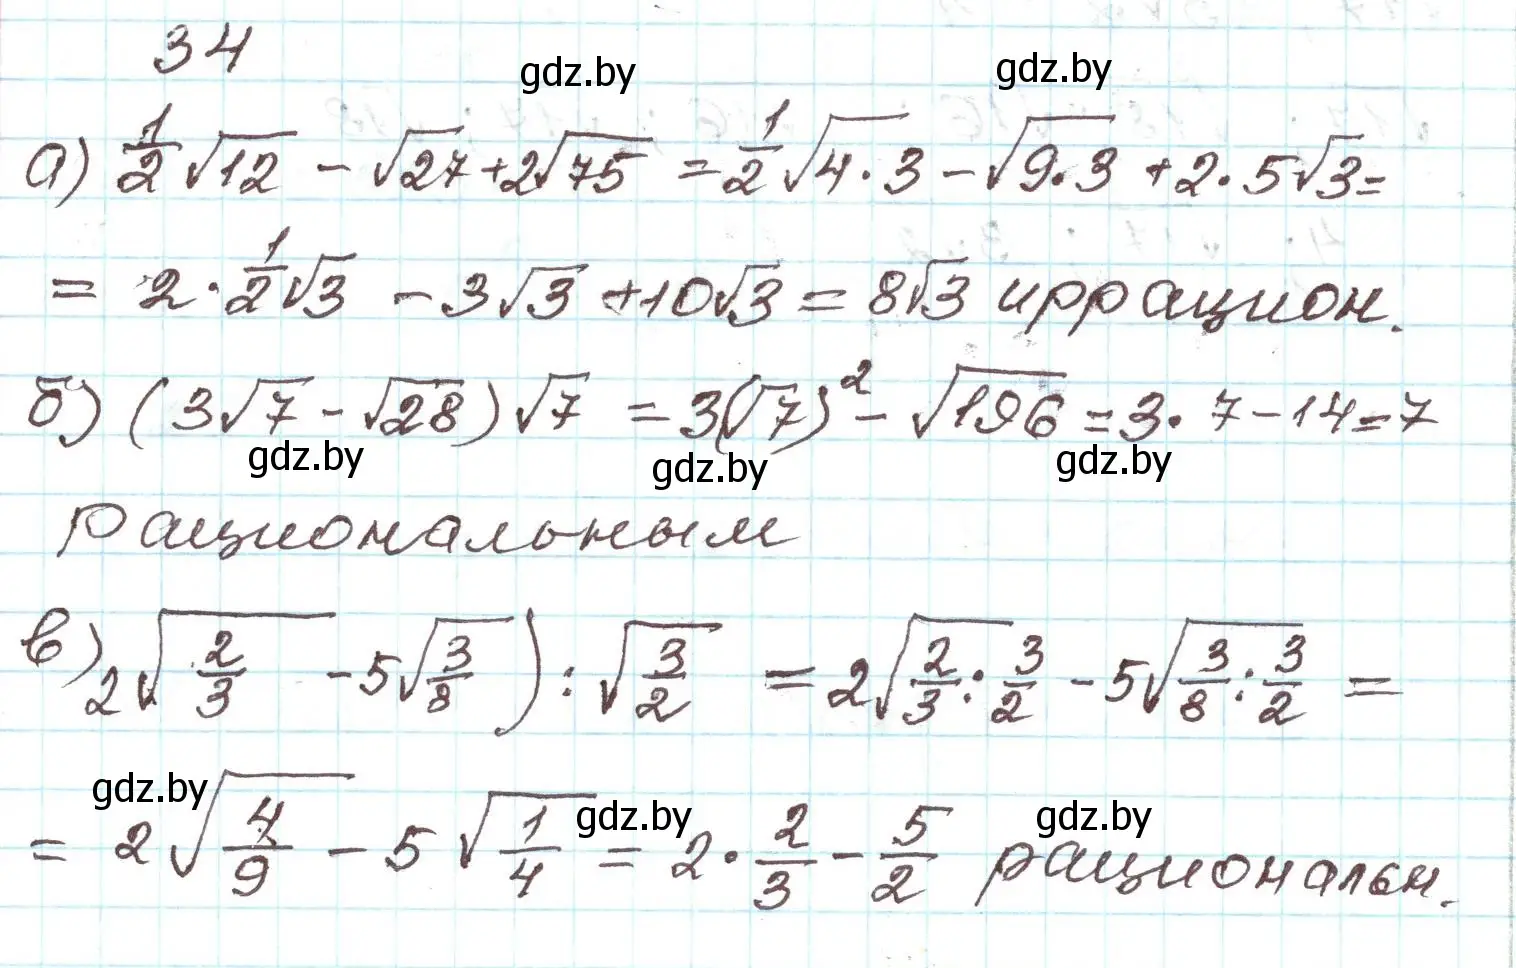 34
gdz.by gdz.by
а) 1/2 √12 - √27 + 2√75 = 1/2 √4·3 - √9·3 + 2·5√3 =
= 2·1/2 √3 - 3√3 + 10√3 = 8√3 иррацион.
б) (3√7 - √28) √7 = 3(√7)² - √196 = 3·7 - 14 = 7
gdz.by gdz.by gdz.by
рациональным
в) 2√2/3 - 5√3/8) : √3/2 = 2√2/3 : 3/2 - 5√3/8 : 3/2 =
gdz.by gdz.by gdz.by
= 2√4/9 - 5√1/4 = 2·2/3 - 5/2 рациональн.